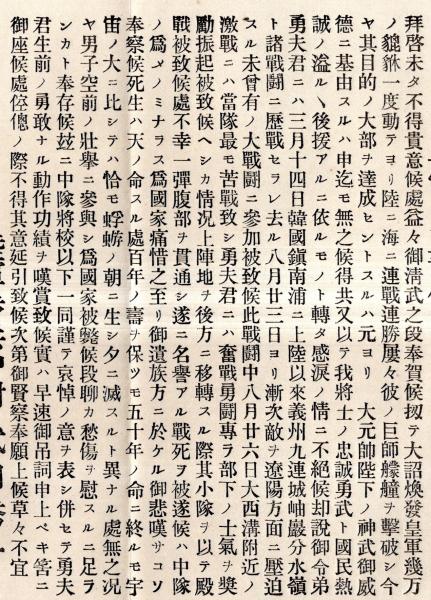 拜啓未タ不得貴意候處益々御淸武之段奉賀候扨テ大詔煥發皇軍幾万
ノ貔貅一度動テヨリ陸ニ海ニ連戰連勝屢々彼ノ巨師艨艟ヲ擊破シ今
ヤ其目的ノ大部ヲ達成セントスルハ元ヨリ　大元帥陛下ノ神武御威
德ニ基由スルハ申迄モ無之候得共又以テ我將士ノ忠誠勇武ト國民熱
誠ノ溢ルヽ後援アルニ依ルモノト轉タ感淚ノ情ニ不絕候却說御令弟
勇夫君ニハ三月十四日韓國鎭南浦ニ上陸以來義州九連城岫巖分水嶺
ト諸戰鬪ニ歷戰セラレ去ル八月廿三日ヨリ漸次敵ヲ遼陽方面ニ壓迫
スル未曾有ノ大戰鬪ニ參加被致候此戰鬪中八月廿六日大西溝附近ノ
激戰ニハ當隊最モ苦戰致シ勇夫君ニハ奮戰勇鬪專ラ部下ノ士氣ヲ奬
勵振起被致候ヘシカ情況上陣地ヲ後方ニ移轉スル際其小隊ヲ以テ殿
戰被致候處不幸一彈腹部ヲ貫通シ遂ニ名譽アル戰死ヲ被遂候ハ中隊
ノ爲メノミナラス爲國家痛惜之至リ御遺族方ニ於ケル御悲嘆サコソ
奉察候死生ハ天ノ命スル處百年ノ壽ヲ保ツモ五十年ノ命ニ終ルモ宇
宙ノ大ニ比シテハ恰モ蜉蝣ノ朝ニ生シ夕ニ滅スルト異ナル處無之況
ヤ男子空前ノ壯擧ニ參與シ爲國家被斃候段聊カ愁傷ヲ慰スルニ足ラ
ンカト奉存候玆ニ中隊將校以下一同謹テ哀悼ノ意ヲ表シ併セテ勇夫
君生前ノ勇敢ナル動作功績ヲ嘆賞致候實ハ早速御吊詞申上ベキ筈ニ
御座候處倥傯ノ際不得其意延引致候次第御賢察奉願上候草々不宜